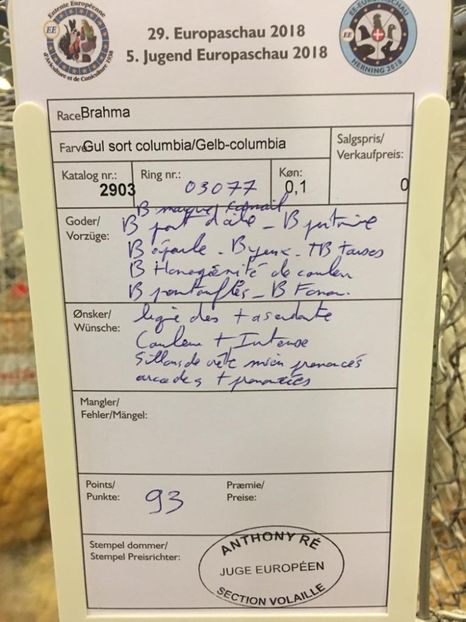 Entente Européenne
d'Aviculture et de Cuniculture 1938
EE
29. Europaschau 2018
5. Jugend Europaschau 2018
EE-EUROPASCHAU
HERNING 2018
Race Brahma
Farve Gul sort columbia/Gelb-columbia
Salgspris/
Verkaufpreis:
0
Katalog nr.:
2903
Ring nr.:
03077
Køn:
0,1
Goder/
Vorzüge:
B camail
B port d'aile - B poitrine
B épaule - B yeux - TB tarses
B Homogénité de couleur
B pantoufles - B
Ønsker/
Wünsche:
ligne dos + ascendante
Couleur + Intense
Sillons de tête mieux prononcés
arcades + prononcées
Mangler/
Fehler/Mängel:
Points/
Punkte:
93
Præmie/
Preise:
Stempel dommer/
Stempel Preisrichter:
ANTHONY RÉ
JUGE EUROPÉEN
SECTION VOLAILLE